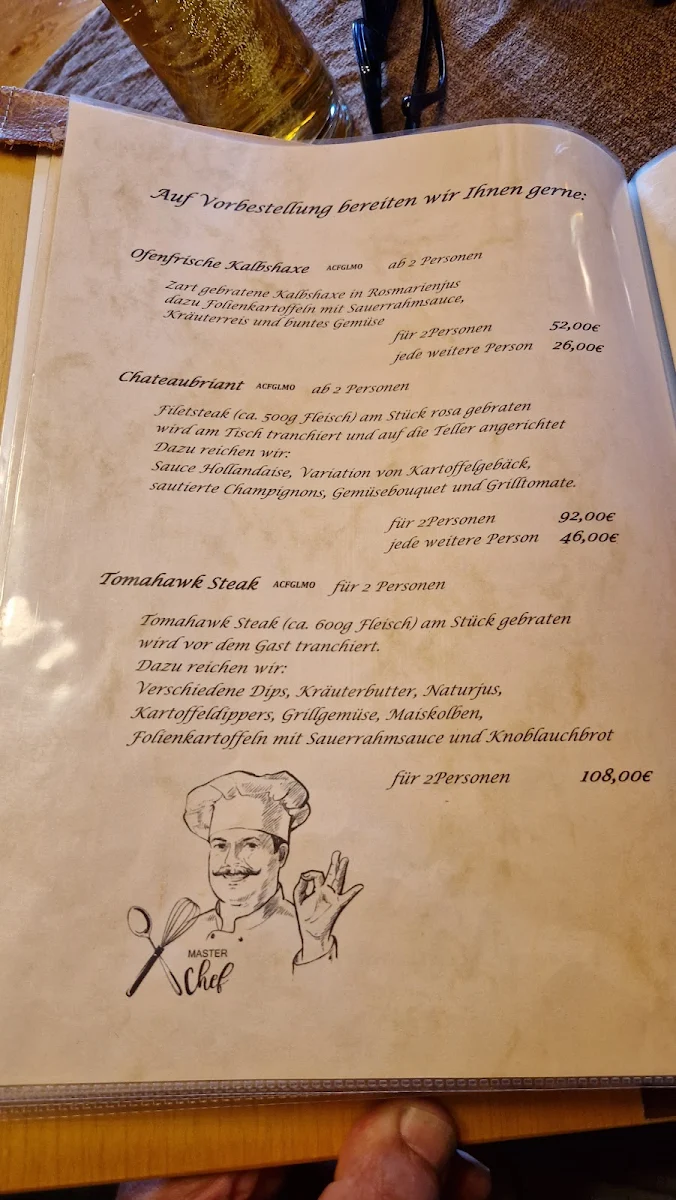 Auf Vorbestellung bereiten wir Ihnen gerne:
Ofenfrische Kalbshaxe ACFGLMO ab 2 Personen
Zart gebratene Kalbshaxe in Rosmarienjus
dazu Folienkartoffeln mit Sauerrahmsauce,
Kräuterreis und buntes Gemüse
für 2Personen 52,00€
jede weitere Person 26,00€
Chateaubriant ACFGLMO ab 2 Personen
Filetsteak (ca. 500g Fleisch) am Stück rosa gebraten
wird am Tisch tranchiert und auf die Teller angerichtet
Dazu reichen wir:
Sauce Hollandaise, Variation von Kartoffelgebäck,
sautierte Champignons, Gemüsebouquet und Grilltomate.
für 2Personen 92,00€
jede weitere Person 46,00€
Tomahawk Steak ACFGLMO für 2 Personen
Tomahawk Steak (ca. 600g Fleisch) am Stück gebraten
wird vor dem Gast tranchiert.
Dazu reichen wir:
Verschiedene Dips, Kräuterbutter, Naturjus,
Kartoffeldippers, Grillgemüse, Maiskolben,
Folienkartoffeln mit Sauerrahmsauce und Knoblauchbrot
für 2Personen 108,00€
MASTER
Chef